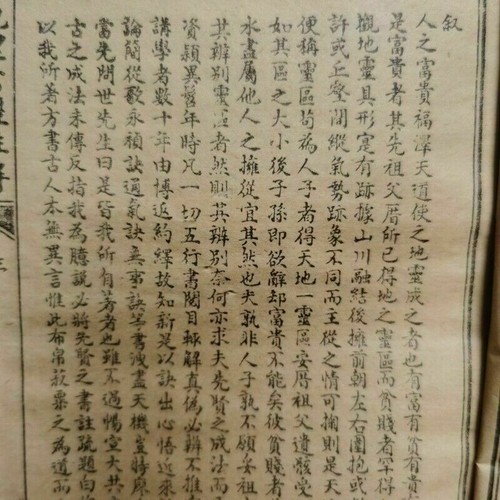 叙
人之富貴福澤天道使之地靈成之者也有富有貧有貴
是富貴者其先祖父厝所已得地之靈區而貧賤者罕得
觀地靈具形寔有跡據山川融結後擁前朝左右圍抱或
許或丘壑開縱氣勢跡象不同而主從之情可掬則是天
便稱靈區苟為人子者得天地一靈區安厝祖父遺骸受
如其區之大小後子孫即欲辭却富貴不能矣彼貧賤者
水盡屬他人之擁從宜其然也夫孰非人子孰不願妥祖
其辨別靈區者然則其辨別奈何亦求夫先賢之成法而
資穎異髫年時凡一切五行書閱目輒解真偽必辨不推
講學者數十年由博返約繹故知新是以訣出心悟近來
論簡從歌永禎訣通氣訣無事訣等書洩盡天機豈時廖
當先問世先生曰是皆我所自著者也雖不過暢宣大共
古之成法未傳反指我為臆説必將先賢之書註疏題白
以我所著方書古人本無異言惟此布帛菽粟之為道而